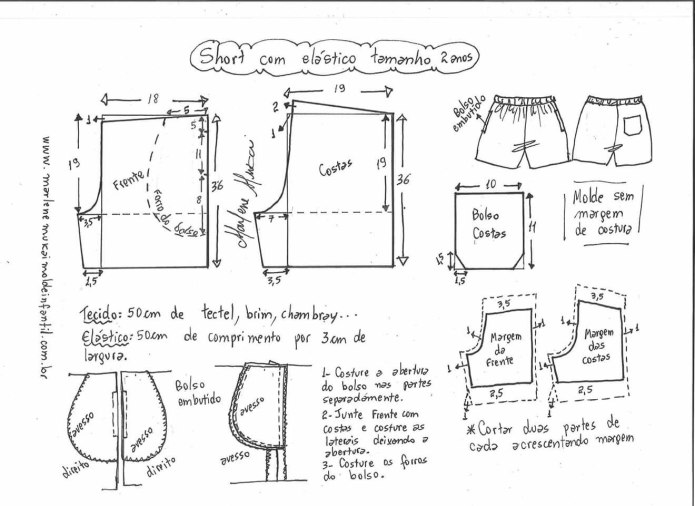 Short com elástico tamanho 2 anos
18
5
1
5
19
11
36
8
Frente
Forro do Bolso
3,5
1,5
19
2
1
Costas
19
36
7
3,5
Marlene Mukai
www.marlenemukaimoldeinfantil.com.br
Bolso
embutido
10
Bolso
Costas
11
1,5
1,5
Molde sem
margem
de costura
Tecido: 50cm de tectel, brim, chambray...
Elástico: 50cm de comprimento por 3cm de
largura.
Bolso
embutido
avesso
avesso
direito
direito
avesso
avesso
1- Costure a abertura
do bolso nas partes
separadamente.
2- Junte Frente com
costas e costure as
laterais deixando a
abertura.
3- Costure os forros
do bolso.
3,5
1
1
Margem
da
Frente
1
2,5
1
3,5
1
1
Margem
das
costas
1
2,5
1
* Cortar duas partes de
cada acrescentando margem